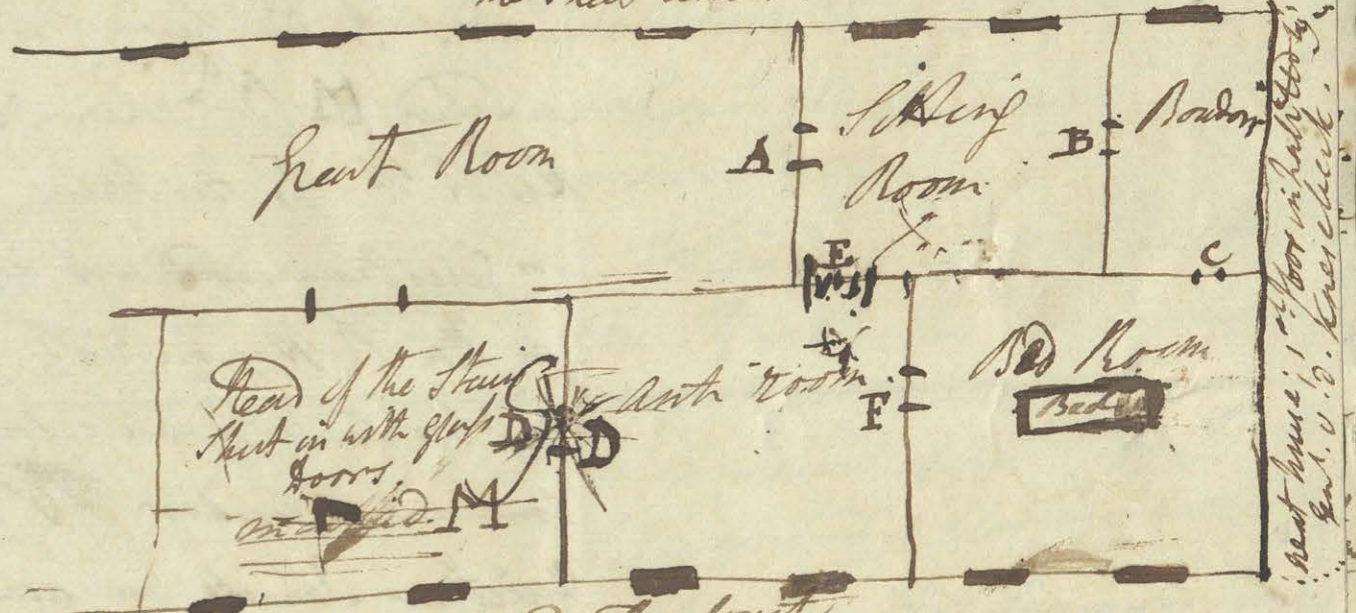 Great Room
A
Sitting
Room
B
Boudoir
E
C
Head of the Stairs
Shut in with glass
doors.
D
D
M
anti room
F
Bed Room
Bed
next house; 1st floor inhabited by
Genl. v. d. Knesebeck.